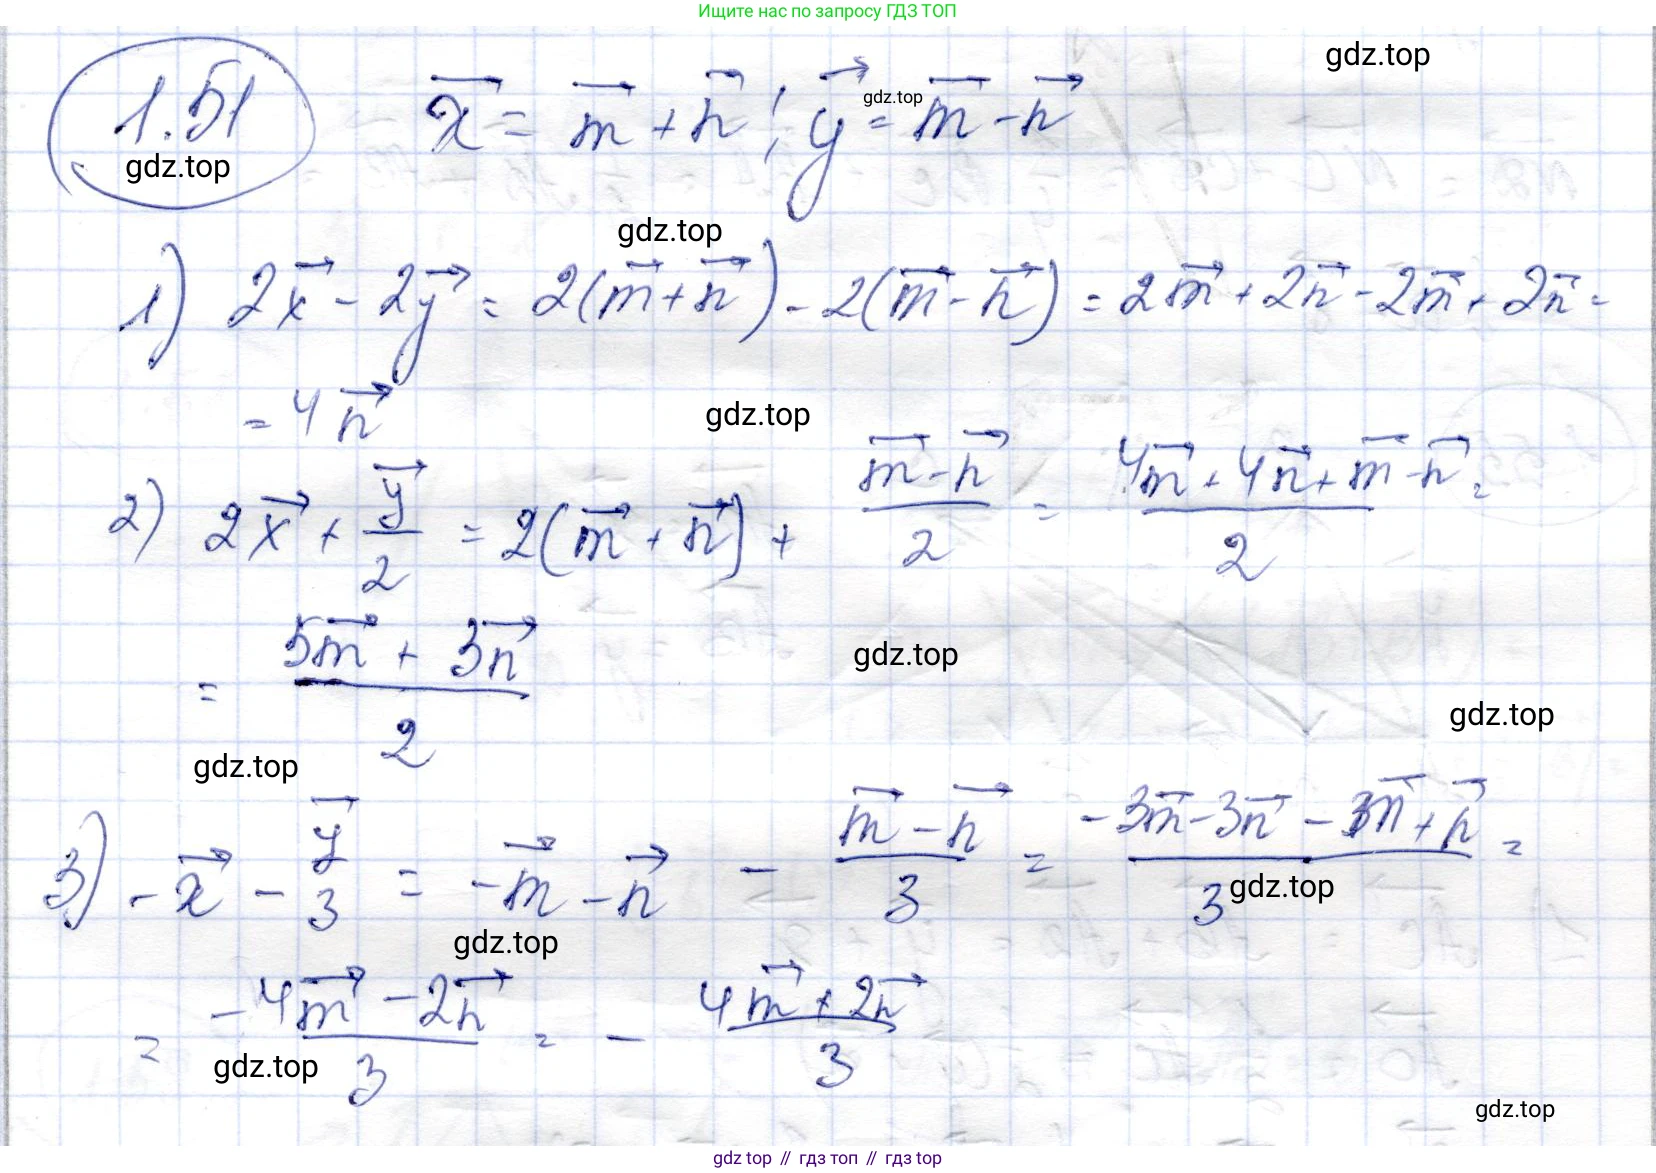 Ищите нас по запросу ГДЗ ТОП
gdz.top
1.51 x⃗ = m⃗ + n⃗ ; y⃗ = m⃗ - n⃗
gdz.top
gdz.top
gdz.top
1) 2x⃗ - 2y⃗ = 2(m⃗ + n⃗) - 2(m⃗ - n⃗) = 2m⃗ + 2n⃗ - 2m⃗ + 2n⃗ =
= 4n⃗
gdz.top
2) 2x⃗ + y⃗/2 = 2(m⃗ + n⃗) + (m⃗ - n⃗)/2 = (4m⃗ + 4n⃗ + m⃗ - n⃗)/2 =
= (5m⃗ + 3n⃗)/2
gdz.top
gdz.top
gdz.top
3) -x⃗ - y⃗/3 = -m⃗ - n⃗ - (m⃗ - n⃗)/3 = (-3m⃗ - 3n⃗ - m⃗ + n⃗)/3 =
gdz.top
gdz.top
= (-4m⃗ - 2n⃗)/3 = - (4m⃗ + 2n⃗)/3
gdz.top
gdz.top
gdz top // гдз топ // gdz top